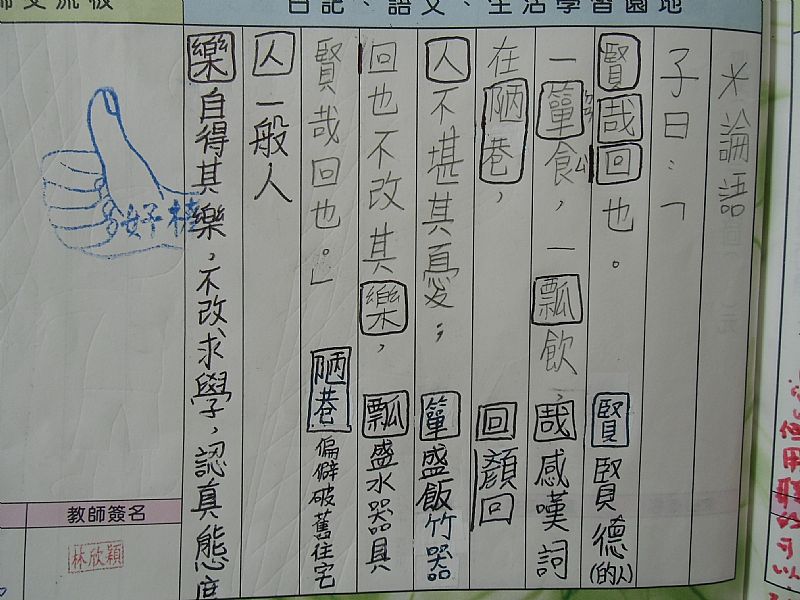 日記、語文、生活學習園地
師交流板
＊論語
子曰：「
賢哉回也。 賢 賢德(的人)
一簞食，一瓢飲， 哉 感嘆詞
在陋巷， 回 顏回
人不堪其憂； 簞 盛飯竹器
回也不改其樂， 瓢 盛水器具
賢哉回也。」 陋巷 偏僻破舊住宅
人 一般人
樂 自得其樂，不改求學，認真態度
好棒
教師簽名
林欣穎